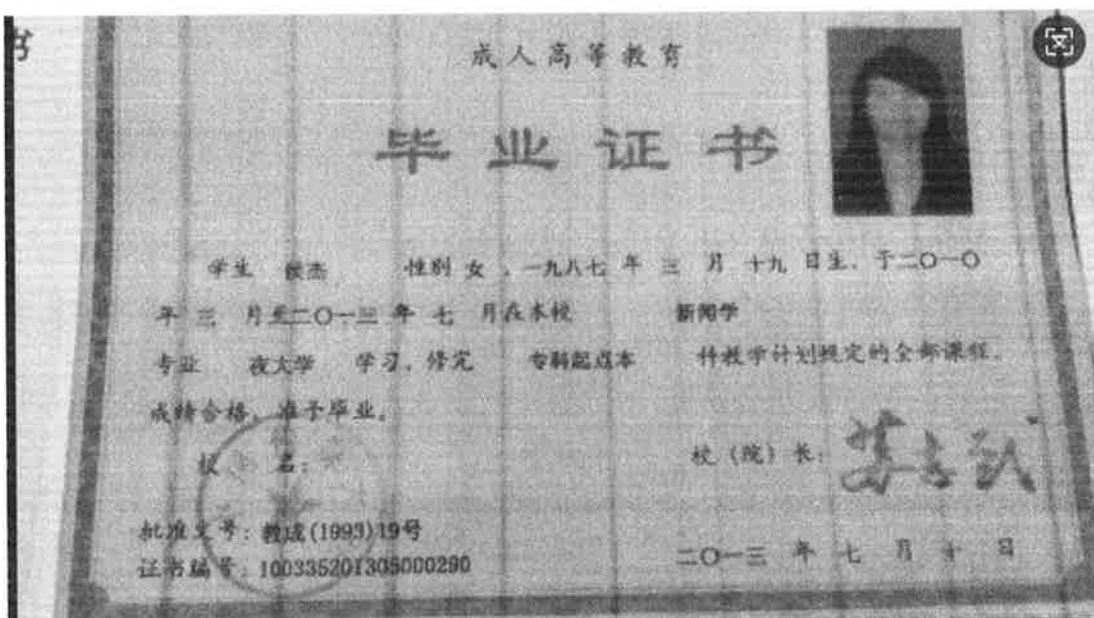 书
成人高等教育
毕业证书
学生 侯杰 性别 女，一九八七 年 三 月 十九 日生，于二〇一〇
年 三 月至二〇一三 年 七 月在本校 新闻学
专业 夜大学 学习，修完 专科起点本 科教学计划规定的全部课程，
成绩合格，准予毕业。
校 名：
校（院）长：
批准文号：教成(1993)19号
证书编号：100335201305000290
二〇一三 年 七 月 十 日